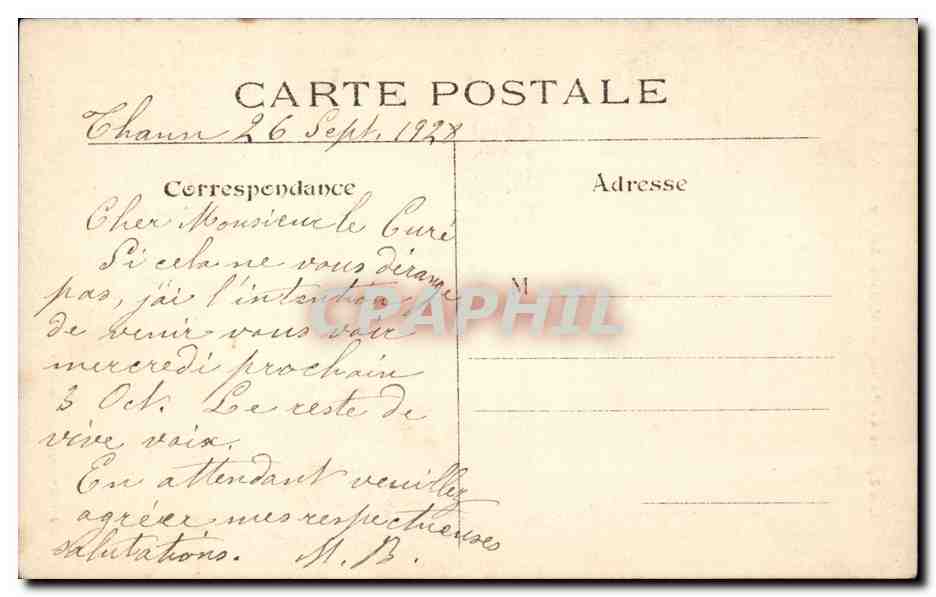 CARTE POSTALE
Thann 26 Sept. 1928
Correspondance
Cher Monsieur le Curé
Si cela ne vous dérange
pas, j'ai l'intention
de venir vous voir
mercredi prochain
3 Oct. Le reste de
vive voix.
En attendant veuillez
agréer mes respectueuses
salutations. M. B.
Adresse
M
CPAPHIL